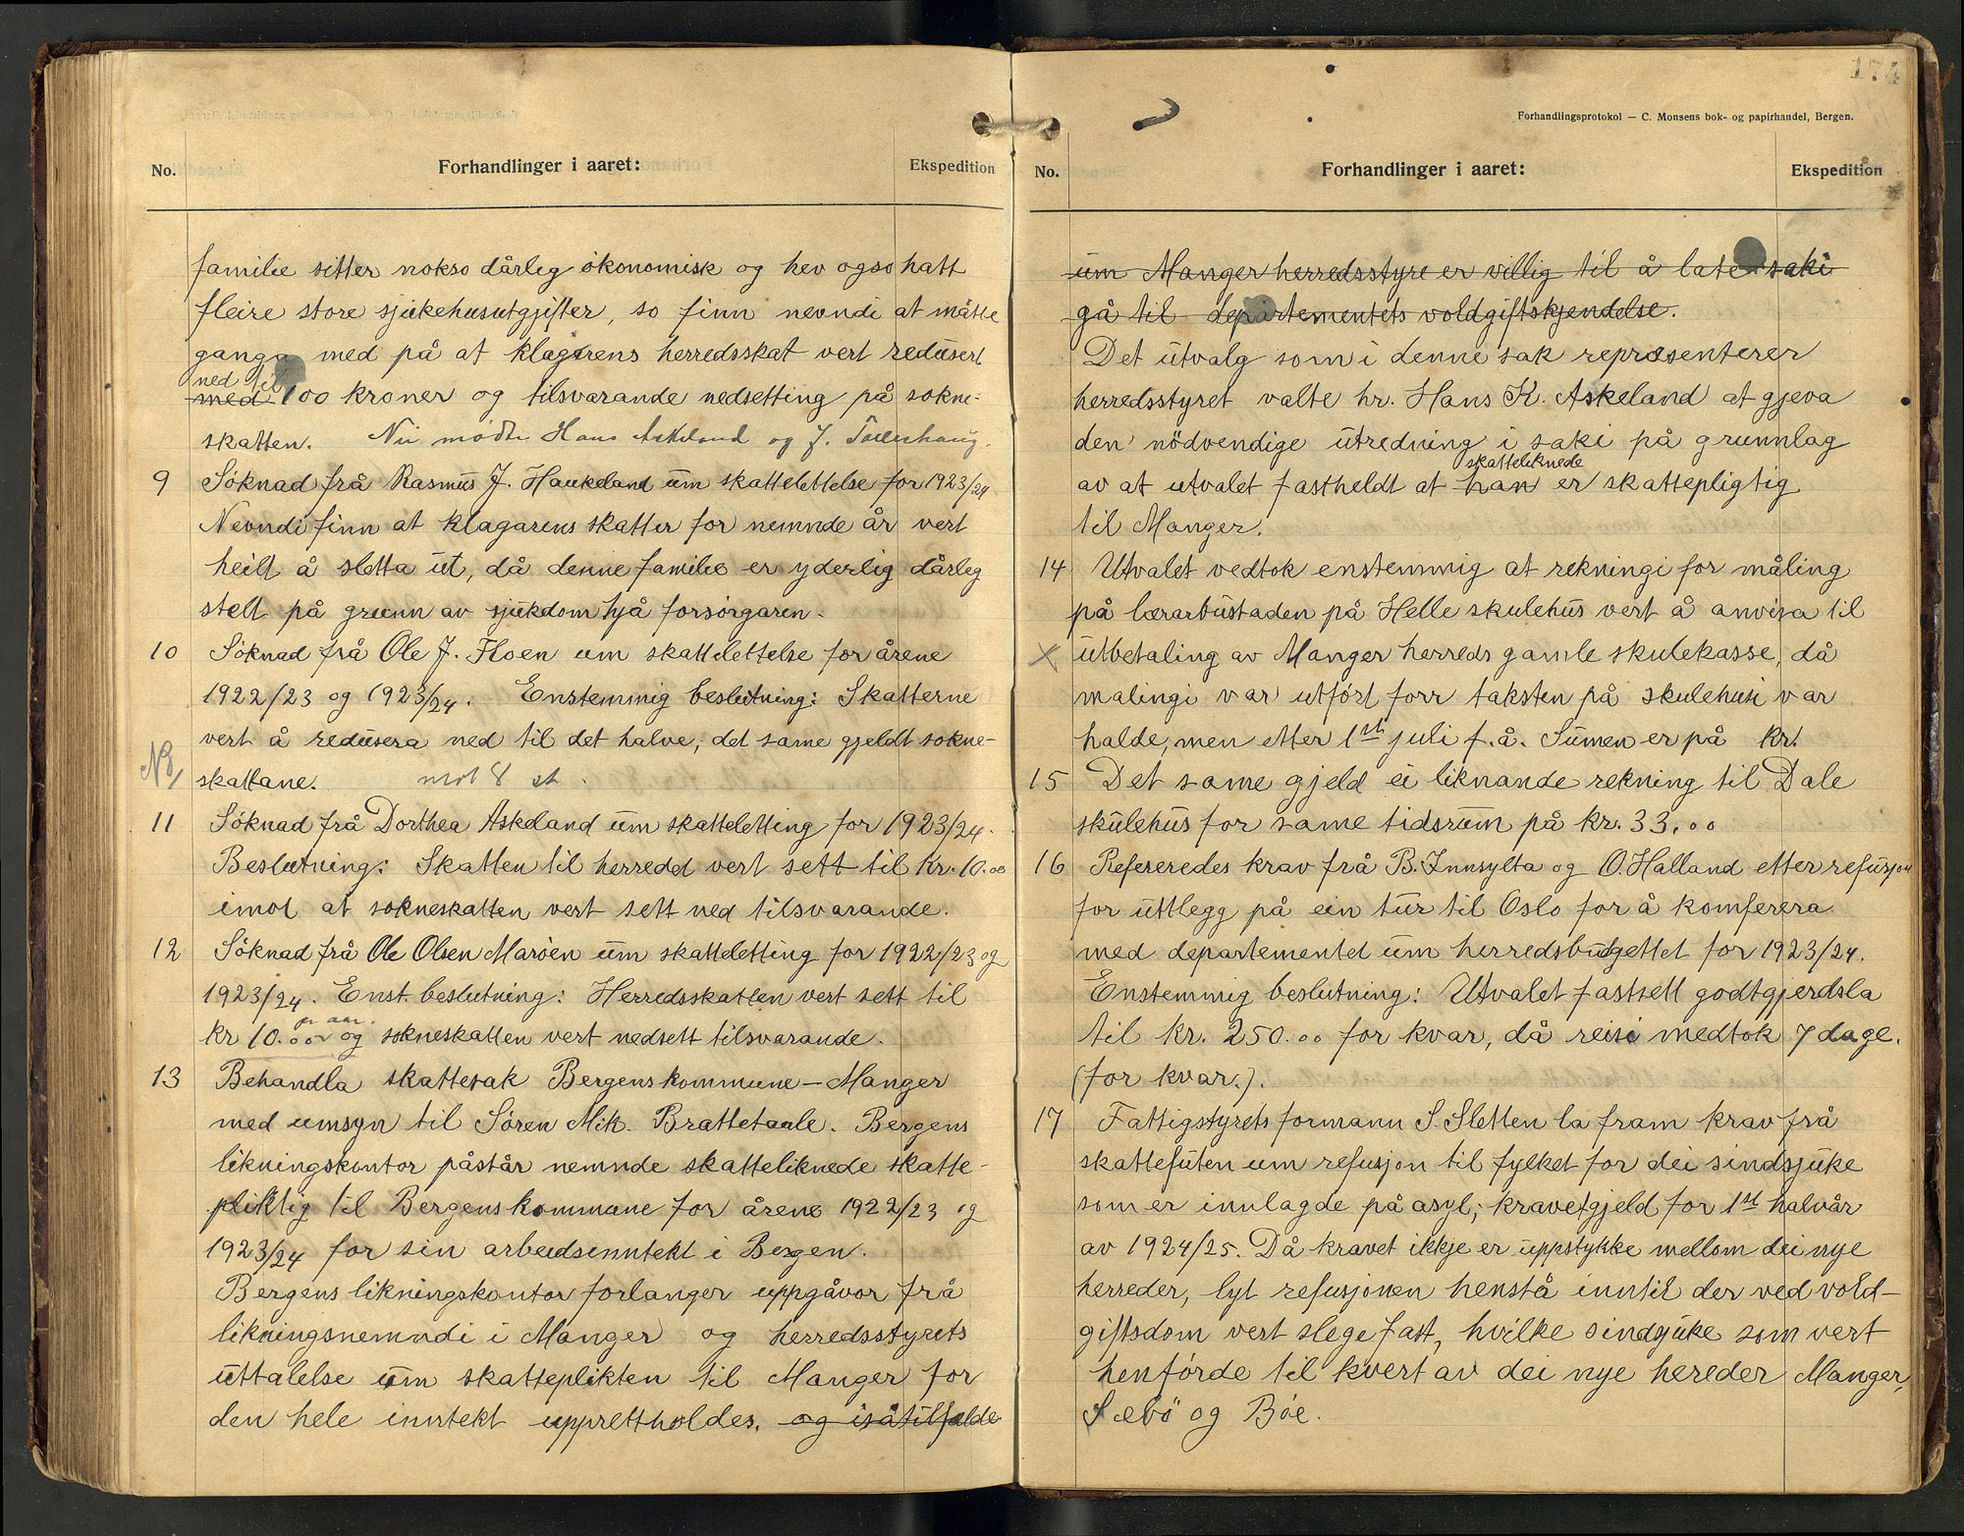 No.
Forhandlinger i aaret:
Ekspedition
familie sitter nokso dårleg økonomisk og hev ogso hatt
fleire store sjukehusutgjifter, so finn nevndi at måtte
ganga med på at klagarens herredsskat vert redusert
ned til
med 100 kroner og tilsvarande nedsetting på sokne-
skatten. Nu mødte Hans Askeland og J. 
9 Söknad frå Rasmus J. Haukeland um skattelettelse for 1923/24
Nevndi finn at klagarens skatter for nemnde år vert
heilt å sletta ut, då denne familie er yderlig dårleg
stelt på grunn av sjukdom hjå forsörgaren.
10 Söknad frå Ole J. Floen um skattelettelse for årene
1922/23 og 1923/24. Enstemmig beslutning: Skatterne
vert å redusera ned til det halve, det same gjeldt sokne-
NB
skattane. mot 8 st.
11 Söknad frå Dorthea Askeland um skatteletting for 1923/24.
Beslutning: Skatten til herredet vert sett til kr. 10.00
imot at sokneskatten vert sett ned tilsvarande.
12 Söknad frå Ole Olsen Maröen um skatteletting for 1922/23 og
1923/24. Enst. beslutning: Herredsskatten vert sett til
pr aar.
kr 10.00 og sokneskatten vert nedsett tilsvarande.
13 Behandla skattesak Bergens kommune – Manger
med umsyn til Sören Mik. Brattetaule. Bergens
likningskontor påstår nemnde skatteliknede skatte-
pliktig til Bergens kommune for årene 1922/23 og
1923/24 for sin arbeidsinntekt i Bergen.
Bergens likningskontor forlanger uppgåvor frå
likningsnemndi i Manger og herredsstyrets
uttalelse um skatteplikten til Manger for
den hele inntekt upprettholdes, og isåtilfælde
174
Forhandlingsprotokol — C. Monsens bok- og papirhandel, Bergen.
No.
Forhandlinger i aaret:
Ekspedition
um Manger herredsstyre er villig til å late saki
gå til departementets voldgiftskjendelse.
Det utvalg som i denne sak repræsenterer
herredsstyret valte hr. Hans K. Askeland at gjeva
den nödvendige utredning i saki på grunnlag
skatteliknede
av at utvalet fastheldt at han er skattepligtig
til Manger.
14 Utvalet vedtok enstemmig at rekningi for måling
på lærarbustaden på Helle skulehus vert å anvisa til
X utbetaling av Manger herreds gamle skulekasse, då
malingi var utfört forr taksten på skulehusi var
halde, men etter 1st juli f.å. Sumen er på kr.
15 Det same gjeld ei liknande rekning til Dale
skulehus for same tidsrum på kr. 33,00
16 Refereredes krav frå B. Innsylta og O. Halland etter refusjon
for uttlegg på ein tur til Oslo for å komferera
med departementet um herredsbudgettet for 1923/24.
Enstemmig beslutning: Utvalet fastsett godtgjerdsla
til kr. 250.00 for kvar, då reisi medtok 7 dage.
(for kvar.).
17 Fattigstyrets formann S. Sletten la fram krav frå
skattefuten um refusjon til fylket for dei sindsjuke
som er innlagde på asyl; kravet gjeld for 1st halvår
av 1924/25. Då kravet ikkje er uppstykke mellom dei nye
herreder, lyt refusjonen henstå inntil der ved vold-
giftsdom vert slege fast, hvilke sindsjuke som vert
henförde til kvert av dei nye hereder Manger,
Sæbö og Böe.